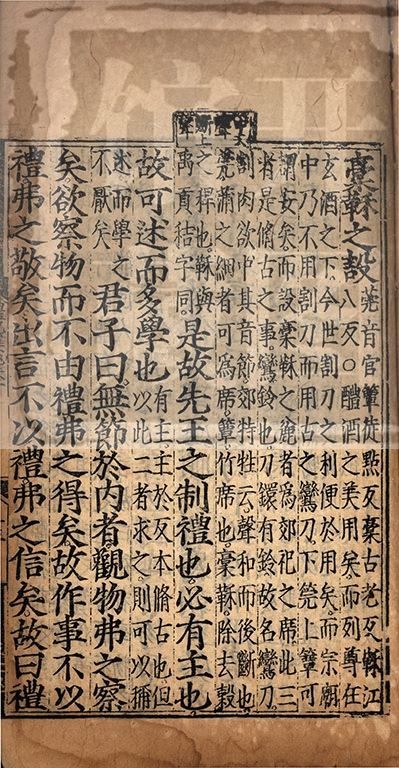 槀鞂之設莞音官簟徒點反槀古老反鞂江
八反○醴酒之美用矣而列尊在
玄酒之下今世割刀之利便於用矣而宗廟
中乃不用割刀而用古之鸞刀下莞上簟可
謂安矣而設槀鞂之麄者為郊祀之席此三
者是脩古之事鸞鈴也刀鐶有鈴故名鸞刀
中去聲
斷上聲
割肉欲中其音節郊特牲云聲和而後斷也
莞蒲之細者可為席簟竹席也槀鞂除去穀
之稈也鞂與
禹貢秸字同是故先王之制禮也必有主也
故可述而多學也有主主於反本脩古也但
以此二者求之則可以穪
述而學之
不厭矣君子曰無節於內者觀物弗之察
矣欲察物而不由禮弗之得矣故作事不以
禮弗之敬矣出言不以禮弗之信矣故曰禮